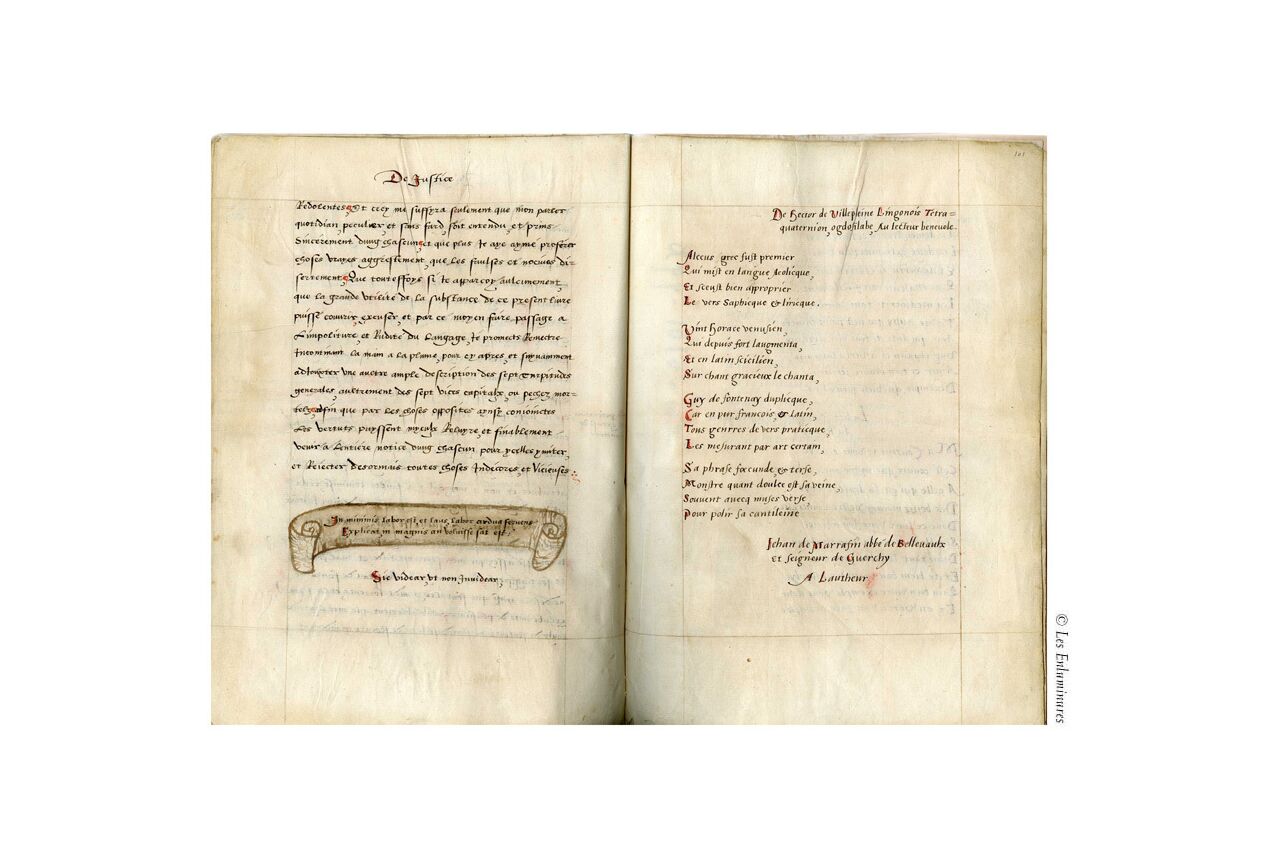 De Justice
Redolentes, Et cecy me suffyra seulement que mon parler
quotidian, peculier, et sans fard soit entendu, et prins
Sincerement dung chascun, et que plus Je aye aymé proferer
choses vrayes aggrestement, que les faulses et nocives di-
sertement, Que touteffoys si Je apparcoy aulcunement,
que la grande utilité de la substance de ce present livre
puisse couvrir, excuser, et par ce moyen faire passage a
Limpoliture, et Rudité du Langage, Je promects Remectre
Incontinant la main a la plume, pour cy apres, et suyvamment
adjouxter une aultre ample description des sept turpitudes
generales, aultrement des sept vices capitalx, ou pechez mor-
telz, afin que par les choses opposites aynsi conjoinctes
Les vertuts puyssent myeulx Reluyre, et finablement
venir a Lentiere notice dung chascun pour ycelles ymiter,
et Rejecter desormais toutes choses Indecores, et Vicieuses.
In minimis labor est et laus, labor ardua seguens
Explicat, in magnis an voluisse sat est.
Sic videar, vt non Invidear,
101
De Hector de Villepleine Lingonois Tetra=
quaternion, ogdosilabe, Au lecteur benevole.
Alceus grec fust premier
Qui mist en langue Aeolicque,
Et sceust bien approprier
Le vers Saphicque & liricque.
Vint Horace venusien,
Qui depuis fort laugmenta,
Et en latin scicilien,
Sur chant gracieux le chanta,
Guy de fontenay duplicque,
Car en pur francois, & latin,
Tous genrres de vers praticque,
Les mesurant par art certain,
Sa phrase foecunde & terse,
Monstre quant doulce est sa veine,
Souvent avecq muses verse,
Pour polir sa cantileine
Jehan de Marrafin abbé de Bellevaulx
et seigneur de Guerchy
A Lautheur
© Les Enluminures